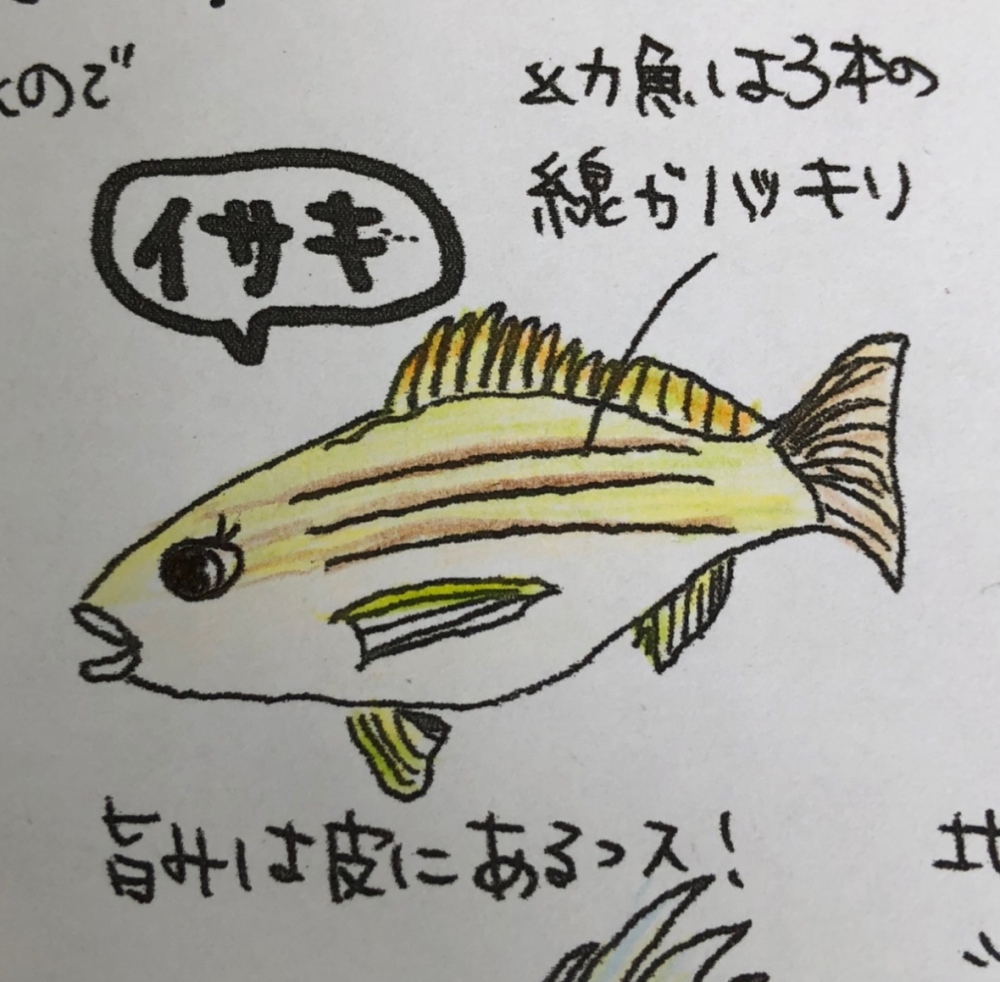 ので
幼魚は3本の
線がハッキリ
イサキ
旨みは皮にあるっス!
地